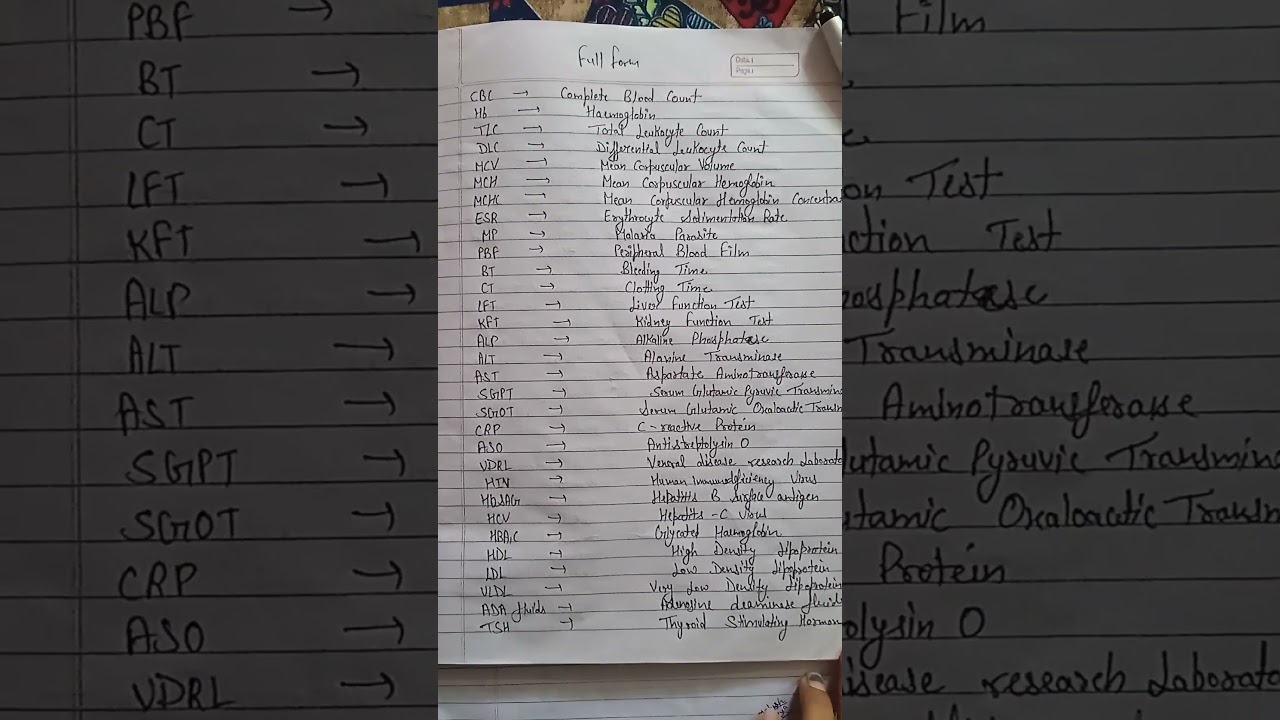 Full form
Date :
Page :
CBC → Complete Blood Count
Hb → Haemoglobin
TLC → Total Leukocyte Count
DLC → Differential Leukocyte Count
MCV → Mean Corpuscular Volume
MCH → Mean Corpuscular Hemoglobin
MCHC → Mean Corpuscular Hemoglobin Concentra
ESR → Erythrocyte Sedimentation Rate
MP → Malaria Parasite
PBF → Peripheral Blood Film
BT → Bleeding Time
CT → Clotting Time
LFT → Liver Function Test
KFT → Kidney Function Test
ALP → Alkaline Phosphatase
ALT → Alanine Transminase
AST → Aspartate Aminotransferase
SGPT → Serum Glutamic Pyruvic Transmin
SGOT → Serum Glutamic Oxaloacatic Transm
CRP → C-reactive Protein
ASO → Antistreptolysin O
VDRL → Veneral disease research Laborato
HIV → Human Immunodeficiency Virus
HbsAG → Hepatitis B Surface antigen
HCV → Hepatits-C Virus
HBA1C → Glycated Haemoglobin
HDL → High Density Lipoprotein
LDL → Low Density Lipoprotein
VLDL → Very Low Density Lipoprotein
ADA fluids → Adenosine deaminase fluids
TSH → Thyroid Stimulating Hormon
PBF → Film
BT →
CT →
LFT → on Test
KFT → ction Test
ALP → osphatase
ALT → Transminase
AST → Aminotransferase
SGPT → utamic Pyruvic Transmin
SGOT → tamic Oxaloacatic Transm
CRP → Protein
ASO → olysin O
VDRL → isease research Laborato